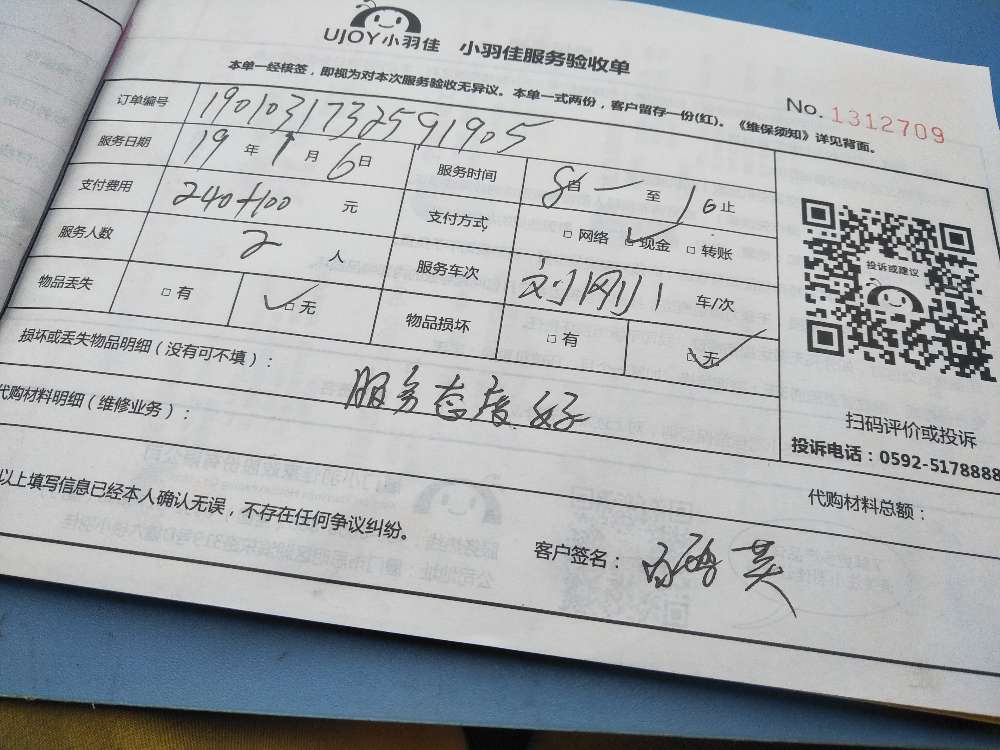 UJOY小羽佳 小羽佳服务验收单
No. 1312709
本单一经核签，即视为对本次服务验收无异议。本单一式两份，客户留存一份(红)。《维保须知》详见背面。
订单编号 1901031732591905
服务日期 19 年 1 月 6 日 服务时间 8 自 一 至 16 止
支付费用 240+100 元 支付方式 □ 网络 ✓现金 □ 转账
服务人数 2 人 服务车次 刘刚 1 车/次
物品丢失 □ 有 ✓□ 无 物品损坏 □ 有 ✓□ 无
损坏或丢失物品明细（没有可不填）：
服务态度好
代购材料明细（维修业务）：
投诉或建议
扫码评价或投诉
投诉电话：0592-5178888
代购材料总额：
以上填写信息已经本人确认无误，不存在任何争议纠纷。
客户签名：